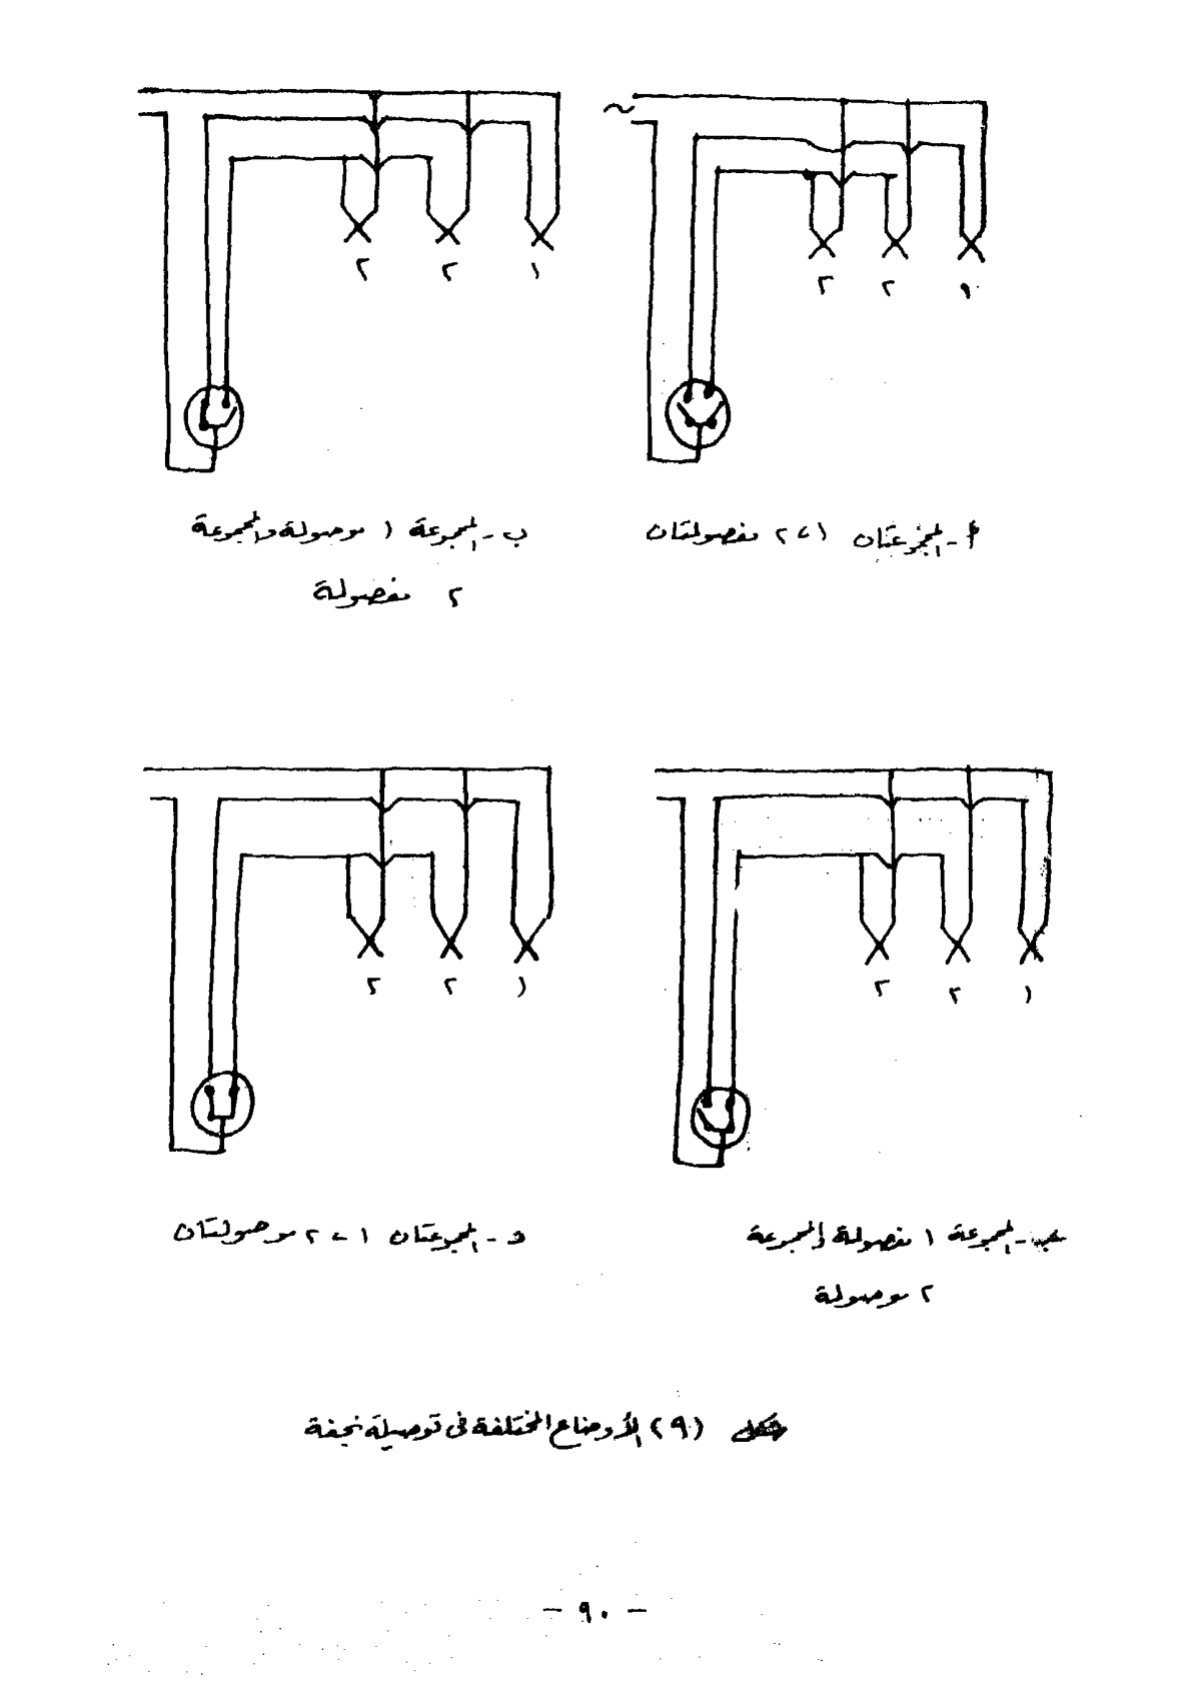 ~
٢ ٢ ١
٢ ٢ ١
أ - المجموعتان ١، ٢ مفصولتان
ب - المجموعة ١ موصولة والمجموعة
٢ مفصولة
٢ ٢ ١
٢ ٢ ١
المجموعة ١ مفصولة والمجموعة
٢ موصولة
د - المجموعتان ١، ٢ موصولتان
شكل (٩) الأوضاع المختلفة في توصيلة نجفة
- ٩٠ -